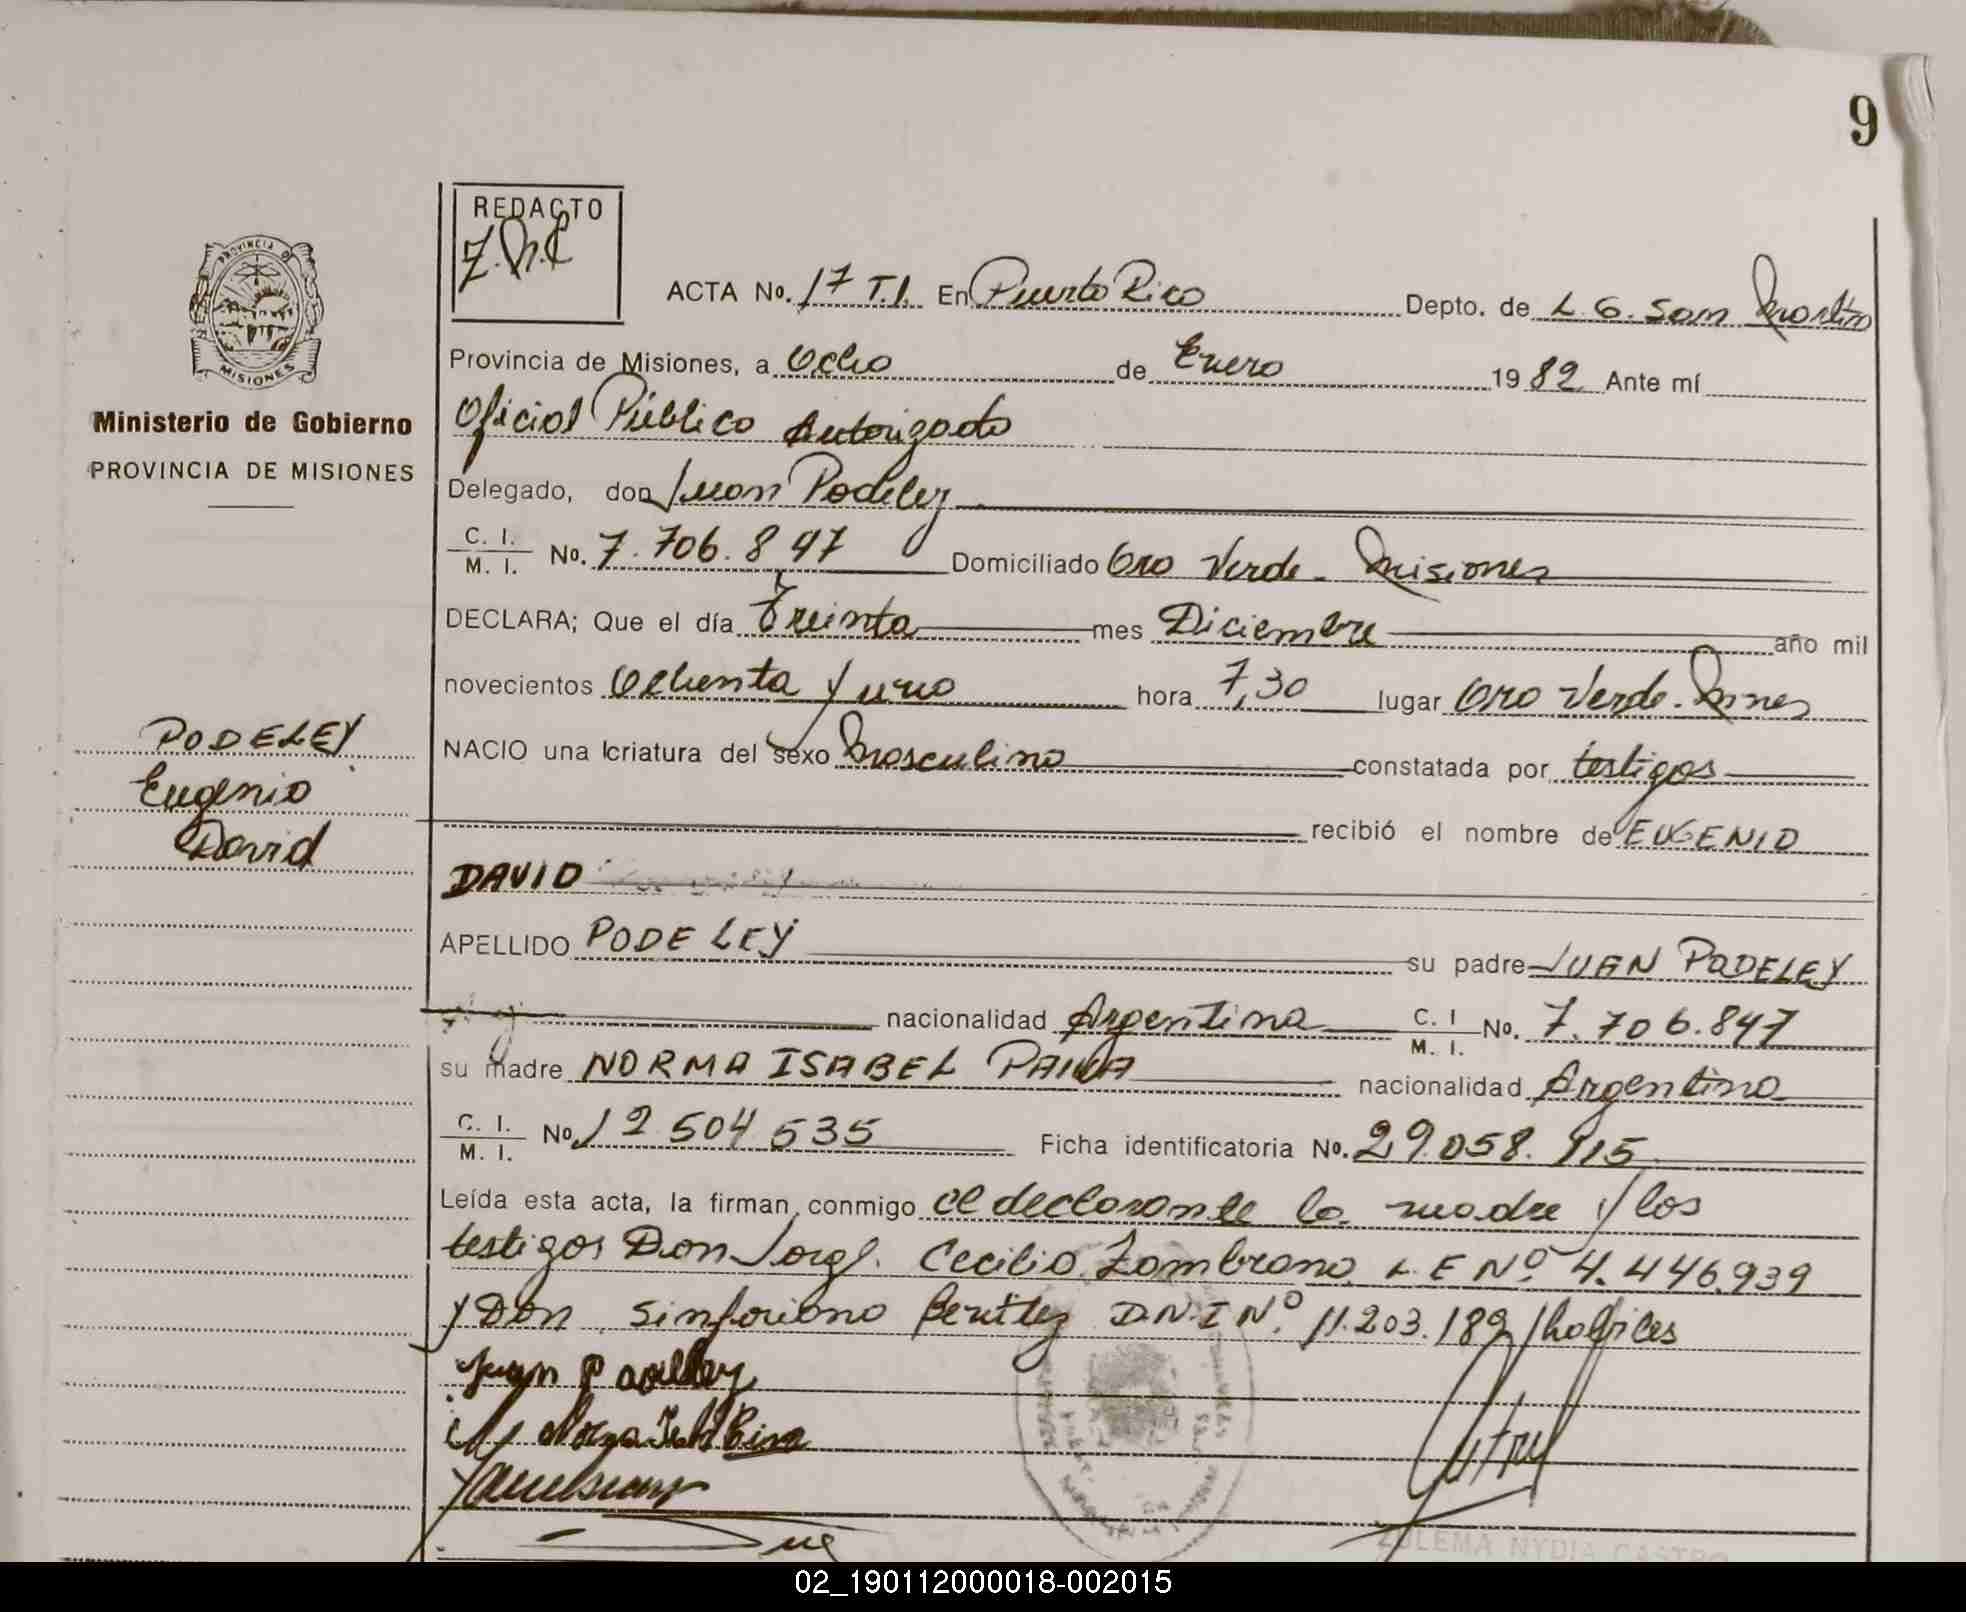 9
REDACTO
Z.N.C
PROVINCIA DE
MISIONES
Ministerio de Gobierno
PROVINCIA DE MISIONES
ACTA No. 17 T.I. En Puerto Rico Depto. de L. G. San Martín
Provincia de Misiones, a Ocho de Enero 1982 Ante mí
Oficial Público Autorizado
Delegado, don Juan Podeley
C. I. / M. I. No. 7.706.847 Domiciliado Oro Verde - Misiones
DECLARA; Que el día Treinta mes Diciembre año mil
novecientos Ochenta y uno hora 7,30 lugar Oro Verde - Mnes
NACIO una criatura del sexo Masculino constatada por testigos
PODELEY
Eugenio
David
recibió el nombre de EUGENIO
DAVID
APELLIDO PODELEY su padre JUAN PODELEY
nacionalidad Argentina C. I / M. I. No. 7.706.847
su madre NORMA ISABEL PAIVA nacionalidad Argentina
C. I. / M. I. No. 12 504 535 Ficha identificatoria No. 29.058.915
Leída esta acta, la firman conmigo el declarante la madre y los
testigos Don Jorge Cecilio Zambrano L E Nº 4.446.939
y Don Sinforiano Benitez D.N.I Nº 11.203.189 / habiles
Juan Podeley
ZULEMA NYDIA CASTRO
02_190112000018-002015